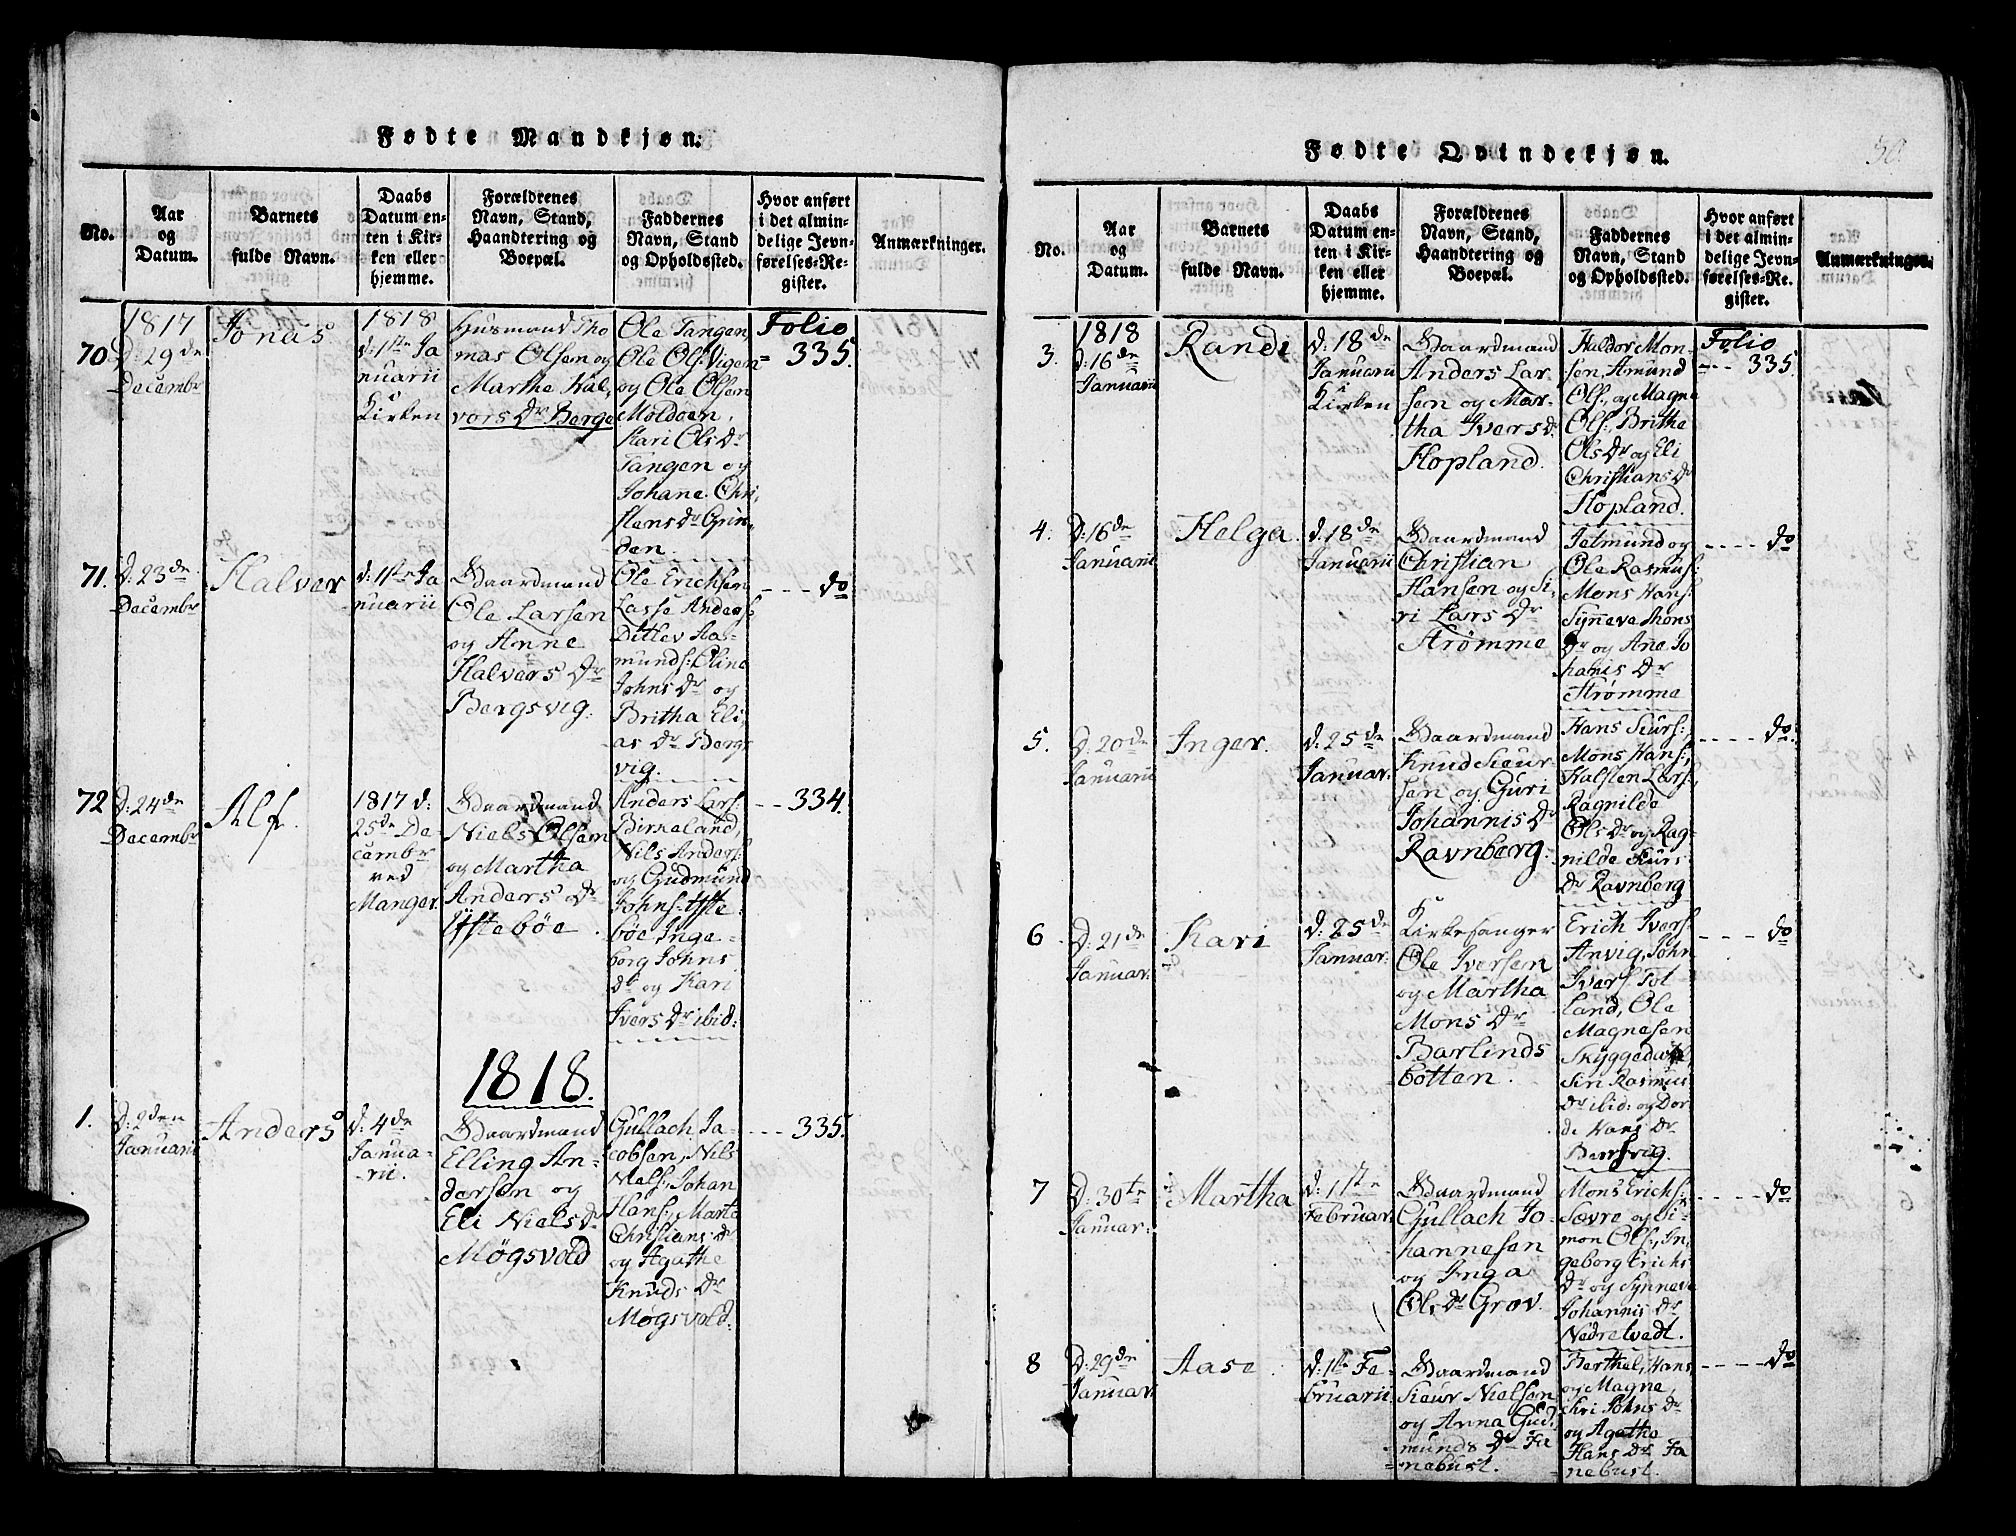 Fødte Mandkjøn.
No.
Aar
og
Datum.
Barnets
fulde Navn.
Daabs
Datum en-
ten i Kir-
ken eller
hjemme.
Forældrenes
Navn, Stand,
Haandtering og
Boepæl.
Faddernes
Navn, Stand
og Opholdssted.
Hvor anført
i det almin-
delige Jevn-
førelses-Re-
gister.
Anmærkninger.
70
1817
D: 29de
Decembr
Jonas
1818
d: 1ste Ja
nuarii
Kirken
Husmand Tho
mas Olsen og
Marthe Hal,
vors Dr Berge
Ole Tangen,
Ole Ols: Vigen
og Ole Olsen
Moldoen,
Kari Ols Dr
Tangen og
Johane Chri,
stens Dr Grin,
den.
Folio
= 335.
71.
D: 23de
Decembr
Halver
d: 1ste Ja
nuarii
Gaardmand
Ole Larsen
og Anne
Halvers Dr
Bergsvig.
Ole Erichsen
Lasse Anders:
Ditlev Ra-
munds: Oline
Johns Dr og
Britha Eli,
as Dr Bergs
vig.
---- do
72
D: 24de
Decembr
Alf.
1817 d:
25de De
cembr
ved
Manger.
Gaardmand
Niels Olsen
og Martha
Anders Dr
Ystebøe.
Anders Lars:
Birkeland,
Nils Anders:
og Gudmund
Johns: Yste-
bøe, Inge-
borg Johns
dr og Kari
Ivers Dr ibid:
-- 334.
1818.
1.
D: 2den
Januarii
Anders
d: 4de
Janua-
rii.
Gaardmand
Elling An-
dersen og
Eli Niels Dr
Møgsvold
Gullach Ja-
cobsen, Nils
Niels:, Johan
Hans:, Marte
Christians Dr
og Agathe
Knuds Dr
Møgsvold.
--- 335.
Fødte Qvindekjøn.
50
No.
Aar
og
Datum.
Barnets
fulde Navn.
Daabs
Datum en-
ten i Kir-
ken eller
hjemme.
Forældrenes
Navn, Stand,
Haandtering og
Boepæl.
Faddernes
Navn, Stand
og Opholdssted.
Hvor anført
i det almin-
delige Jevn-
førelses-Re-
gister.
Anmærkninger.
3.
1818
d: 16de
Januarii
Randi
d: 18de
Januarii
Kirken
Gaardmand
Anders Lar-
sen og Mar-
tha Ivers Dr
Hopland.
Haldor Mon-
sen, Amund
Ols:, og Magne
Ols:, Brithe
Ols Dr og Eli
Christians Dr
Hopland.
Folio
--- 335.
4.
D: 16de
Januarii
Helga.
d: 18de
Januarii
Gaardmand
Christian
Hansen og Si,
ri Lars Dr
Strømme
Jetmund og
Ole Rasmus:
Mons Hans:
Synneva Mons
Dr og Ane Jo
hanis Dr
Strømme
---- do
5.
D: 20de
Januarii
Inger.
d: 25de
Januar.
Gaardmand
Knud Sieur
sen og Guri
Johannis Dr
Ravnberg.
Hans Siurs:
Mons Hans:,
Halsten Lars:,
Ragnilde
Ols Dr og Rag-
nilde Siurs
Dr Ravnberg
---- do.
6
D: 21de
Januar:
Kari
d: 25de
Januar:
Kirkesanger
Ole Iversen
og Martha
Mons Dr
Barlinds
botten.
Erich Ivers:
Anvig, John
Ivers: Tot
land, Ole
Magnesen
Sin Rasmus
Dr ibid: og Dor
de Hans Dr
---- do
7
D: 30te
Januar:
Martha
d: 1ste
Februar:
Gaardmand
Gullach Jo-
hannesen
og Inga
Ols Dr Grov.
Mons Erichs:
Søvre og Si-
mon Ols:, In,
geborg Erichs
Dr og Synneva
Johannis Dr
Nedretvedt.
----- do
8
D: 29de
Januarii
Aase.
d: 1te Fe-
bruarii
Gaardmand
Sieur Nielsen
og Anna Gud,
munds Dr Fa
nebust.
Berthel, Hans,
og Magne,
Johns Dr
og Agatha
Hans Dr Fa
nebust.
----- do